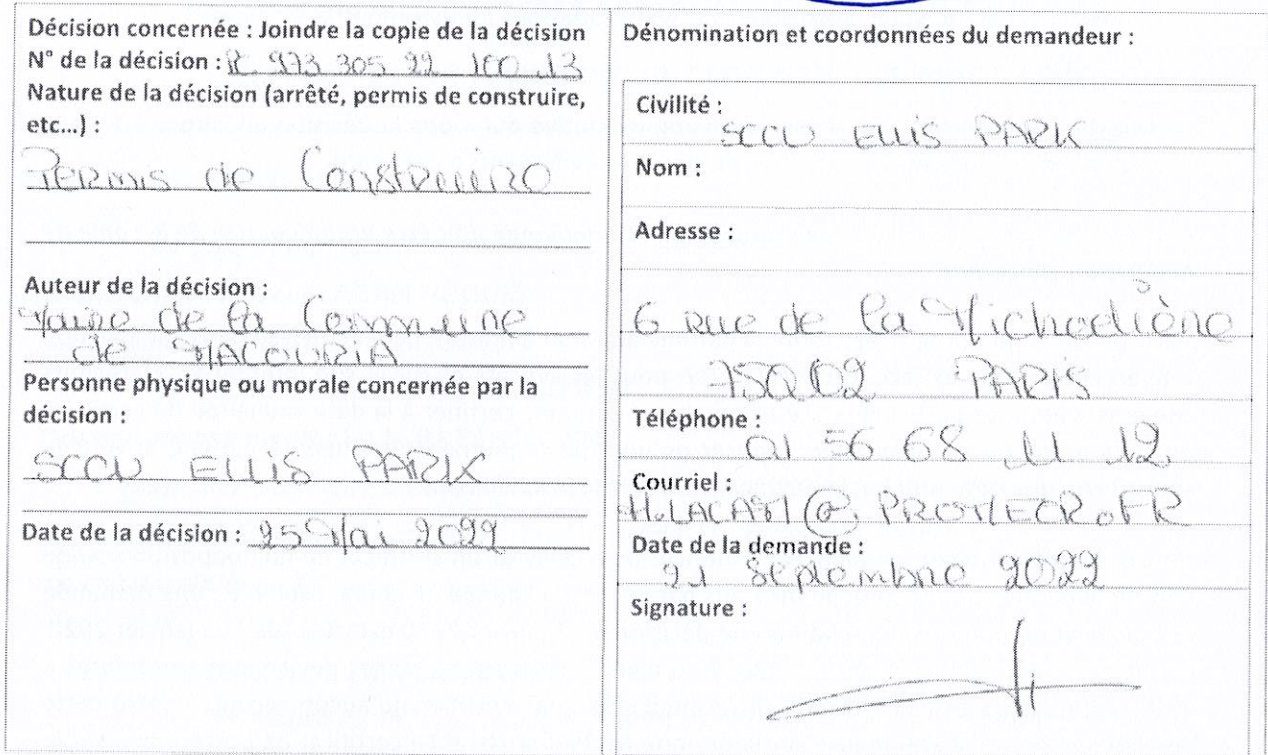 Décision concernée : Joindre la copie de la décision
N° de la décision : PC 973 305 22 100 13
Nature de la décision (arrêté, permis de construire,
etc...) :
PERMIS de Construire
Auteur de la décision :
Maire de la Commune
de MACOURIA
Personne physique ou morale concernée par la
décision :
SCCV ELLIS PARK
Date de la décision : 25 Mai 2022
Dénomination et coordonnées du demandeur :
Civilité :
SCCV ELLIS PARK
Nom :
Adresse :
6 Rue de la Michodière
75002 PARIS
Téléphone :
01 56 68 11 12
Courriel :
Date de la demande :
21 Septembre 2022
Signature :